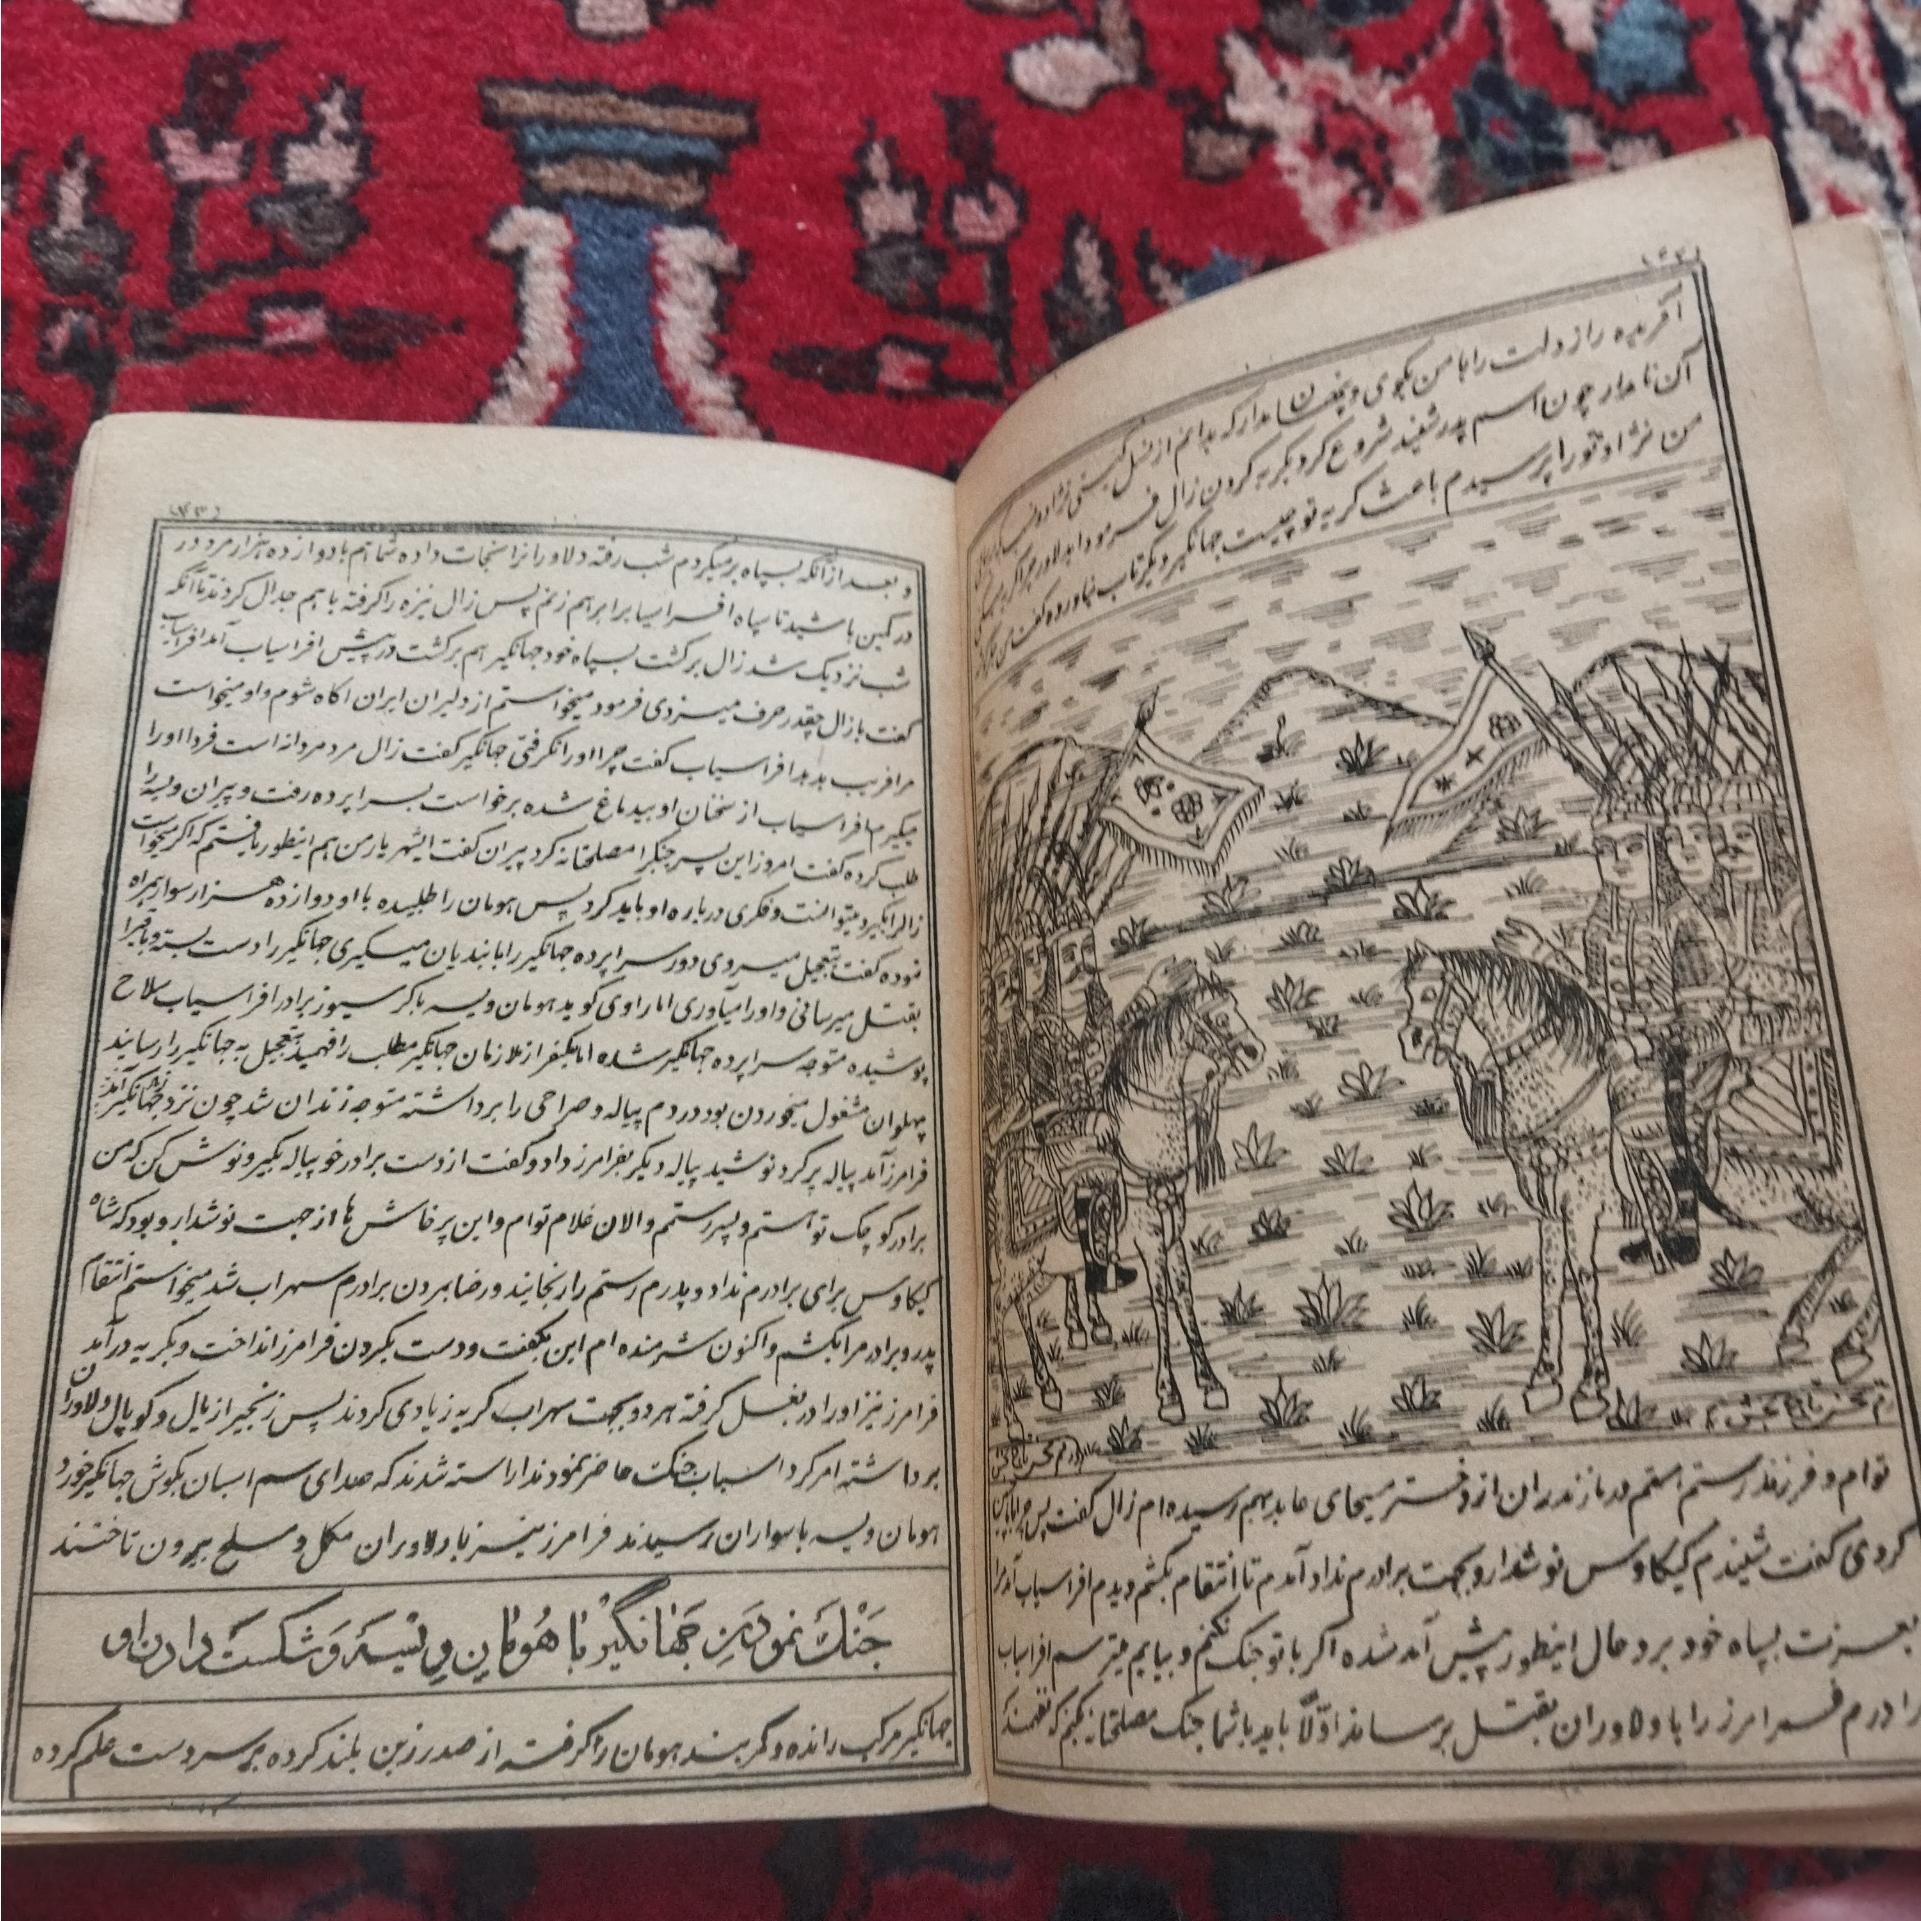 آفریده راز دولت را با من بگوی و پنهان مدار که بدانم از نسل کیستی نژاد و نسب
آن نامدار چون اسم پدر شنید شروع کرد بگریه کردن زال فرمود ایدلاور چرا گریه میکنی
من نژاد تو را پرسیدم باعث گریه تو چیست جهانگیر دیگر تاب نیاورده گفت من
توام و فرزند رستم استم در مازندران از دختر مسیحای عابد بهم رسیده‌ام زال گفت پس چرا
کردی گفت شنیدم کیکاوس نوشدارو بجهت برادرم نداد آمدم تا انتقام بکشم دیدم افراسیاب آمد مرا
بعزت بسپاه خود برد حال اینطور پیش آمد شده اگر با تو جنگ نکنم و بیایم میترسم افراسیاب
برادرم فرامرز را با دلاوران بقتل برساند اولاً باید با شما جنگ مصلحانه بکنم که نفهمند
و بعد از آنکه بسپاه برمیگردم شب رفته دلاورانرا نجات داده شما هم با دوازده هزار مرد در
در کمین باشید تا سپاه افراسیاب را برهم زنم پس زال نیزه را گرفته با هم جدال کردند تا آنکه
شب نزدیک شد زال برگشت بسپاه خود جهانگیر هم برگشت در پیش افراسیاب آمد افراسیاب
گفت با زال چقدر حرف میزدی فرمود میخواستم از دلیران ایران اگاه شوم و او میخواست
مرا فریب بدهد افراسیاب گفت چرا او را نگرفتی جهانگیر گفت زال مرد مردانه است فردا او را
میگیرم افراسیاب از سخنان او بیدماغ شده برخواست بسراپرده رفت و پیران ویسه را
طلب کرده گفت امروز این پسر جنگرا مصلحانه کرد پیران گفت ایشهریار من هم اینطور یافتم که اگر میخواست
زالرا بگیرد میتوانست و فکری درباره او باید کرد پس هومان را طلبیده با او دوازده هزار سوار همراه
نموده گفت بتعجیل میروی دور سراپرده جهانگیر را با بندیان میگیری جهانگیر را دست بسته و باقیرا
بقتل میرسانی و او را میآوری اما راوی گوید هومان ویسه با کرسیوز برادر افراسیاب سلاح
پوشیده متوجه سراپرده جهانگیر شده اما یکنفر از ملازمان جهانگیر مطلب را فهمید بتعجیل به جهانگیر رسانید
پهلوان مشغول میخوردن بود در دم پیاله و صراحی را برداشته متوجه زندان شد چون نزد
فرامرز آمد پیاله پر کرد نوشید پیاله دیگر بفرامرز داد و گفت از دست برادر خو پیاله بگیر و نوش کن که من
برادر کوچک تو استم و پسر رستم و الان غلام توام و این پرخاش ها از جهت نوشدارو بود که شاه
کیکاوس برای برادرم نداد و پدرم رستم را رنجانید و رضا بمردن برادرم سهراب شد میخواستم انتقام
پدر و برادر مرا بکشم و اکنون شرمنده ام این بگفت و دست بگردن فرامرز انداخت و بگریه درآمدن
فرامرز نیز او را در بغل گرفته هر دو بجهت سهراب گریه زیادی کردند پس زنجیر از یال و کوپال دلاوران
برداشته امر کرد اسباب جنگ حاضر نمودند اراسته شدند که صدای سم اسبان بگوش جهانگیر خورد
هومان ویسه با سواران رسیدند فرامرز نیز با دلاوران مکمل و مسلح بیرون تاختند
جَنْك نمودَنِ جَهٰانگیرْ بٰا هُومٰانِ وِیسَهْ وَ شکَسْت دادن او
جهانگیر مرکب رانده و کمربند هومان را گرفته از صدر زین بلند کرده بر سر دست علم کرده